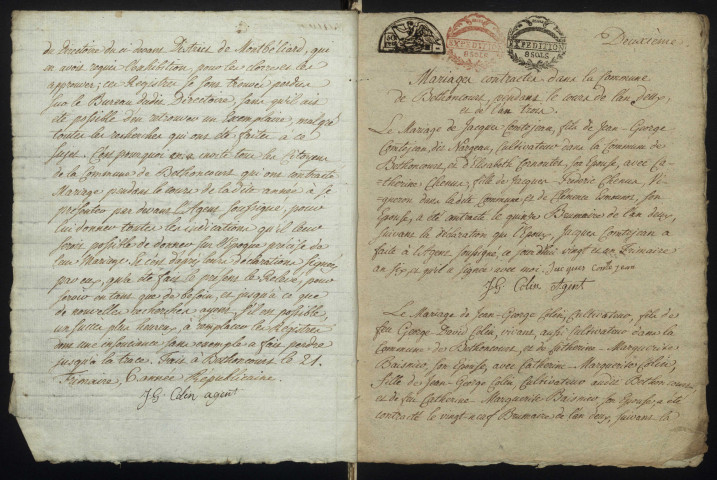 du Directoire du ci devant District de Montbéliard, qui
en avoit requis l'exhibition, pour les clorre et les
approuver; ces Registres se sont trouvés perdus
sur le Bureau dudit Directoire, sans qu'il ait
été possible d'en retrouver un Exemplaire, malgré
toutes les recherches qui ont été faites à ce
sujet. C'est pourquoi on invite tous les Citoyens
de la Commune de Bethoncourt qui ont contracté
Mariage pendant le cours de la dite année à se
présenter par devant l'Agent soussigné, pour
lui donner toutes les indications qu'il leur
seroit possible de donner sur l'Epoque précise de
leur Mariage. Et c'est d'après leurs déclarations signées
par eux, qu'a été fait le présent Registre, pour
servir en tant que de besoin, et jusqu'à ce que
de nouvelles recherches ayent, s'il est possible,
un succès plus heureux, à remplacer les Registres
que une insouciance sans exemple a fait perdre
jusqu'à la trace. Fait à Bethoncourt le 21.
Frimaire, 6 année Républicaine.
JG. Colin agent
EXPEDITION
850ES
EXPEDITION
850ES
Deuxième.
Mariages contractés dans la Commune
de Bethoncourt, pendant le cours de l'an deux,
et de l'an trois.
Le Mariage de Jacques Contejean, fils de Jean-George
Contejean, dit Nargeau, Cultivateur dans la Commune de
Bethoncourt, et d'Elisabeth Cernoutet, son Epouse, avec Ca-
=therine Chenu, fille de Jacques-Fréderic Chenu, Vi-
gneron dans ladite Commune, et de Clémence son
Epouse, a été contracté le quinze Brumaire de l'an deux,
suivant la déclaration que l'Epoux, Jacques Contejean a
faite à l'Agent soussigné, ce jourd'hui vingt et un Frimaire
an six, et qu'il a signée avec moi. Jacques Contejean
JG Colin agent
Le Mariage de Jean-George Colin, Cultivateur, fils de
feu George David Colin, vivant aussi Cultivateur dans la
Commune de Bethoncourt, et de Catherine-Marguerite
Baisnier, son Epouse, avec Catherine-Marguerite Colin,
fille de Jean-George Colin, Cultivateur audit Bethoncourt
et de feu Catherine-Marguerite Baisnier, son Epouse, a été
contracté le vingt-neuf Brumaire de l'an deux, suivant la